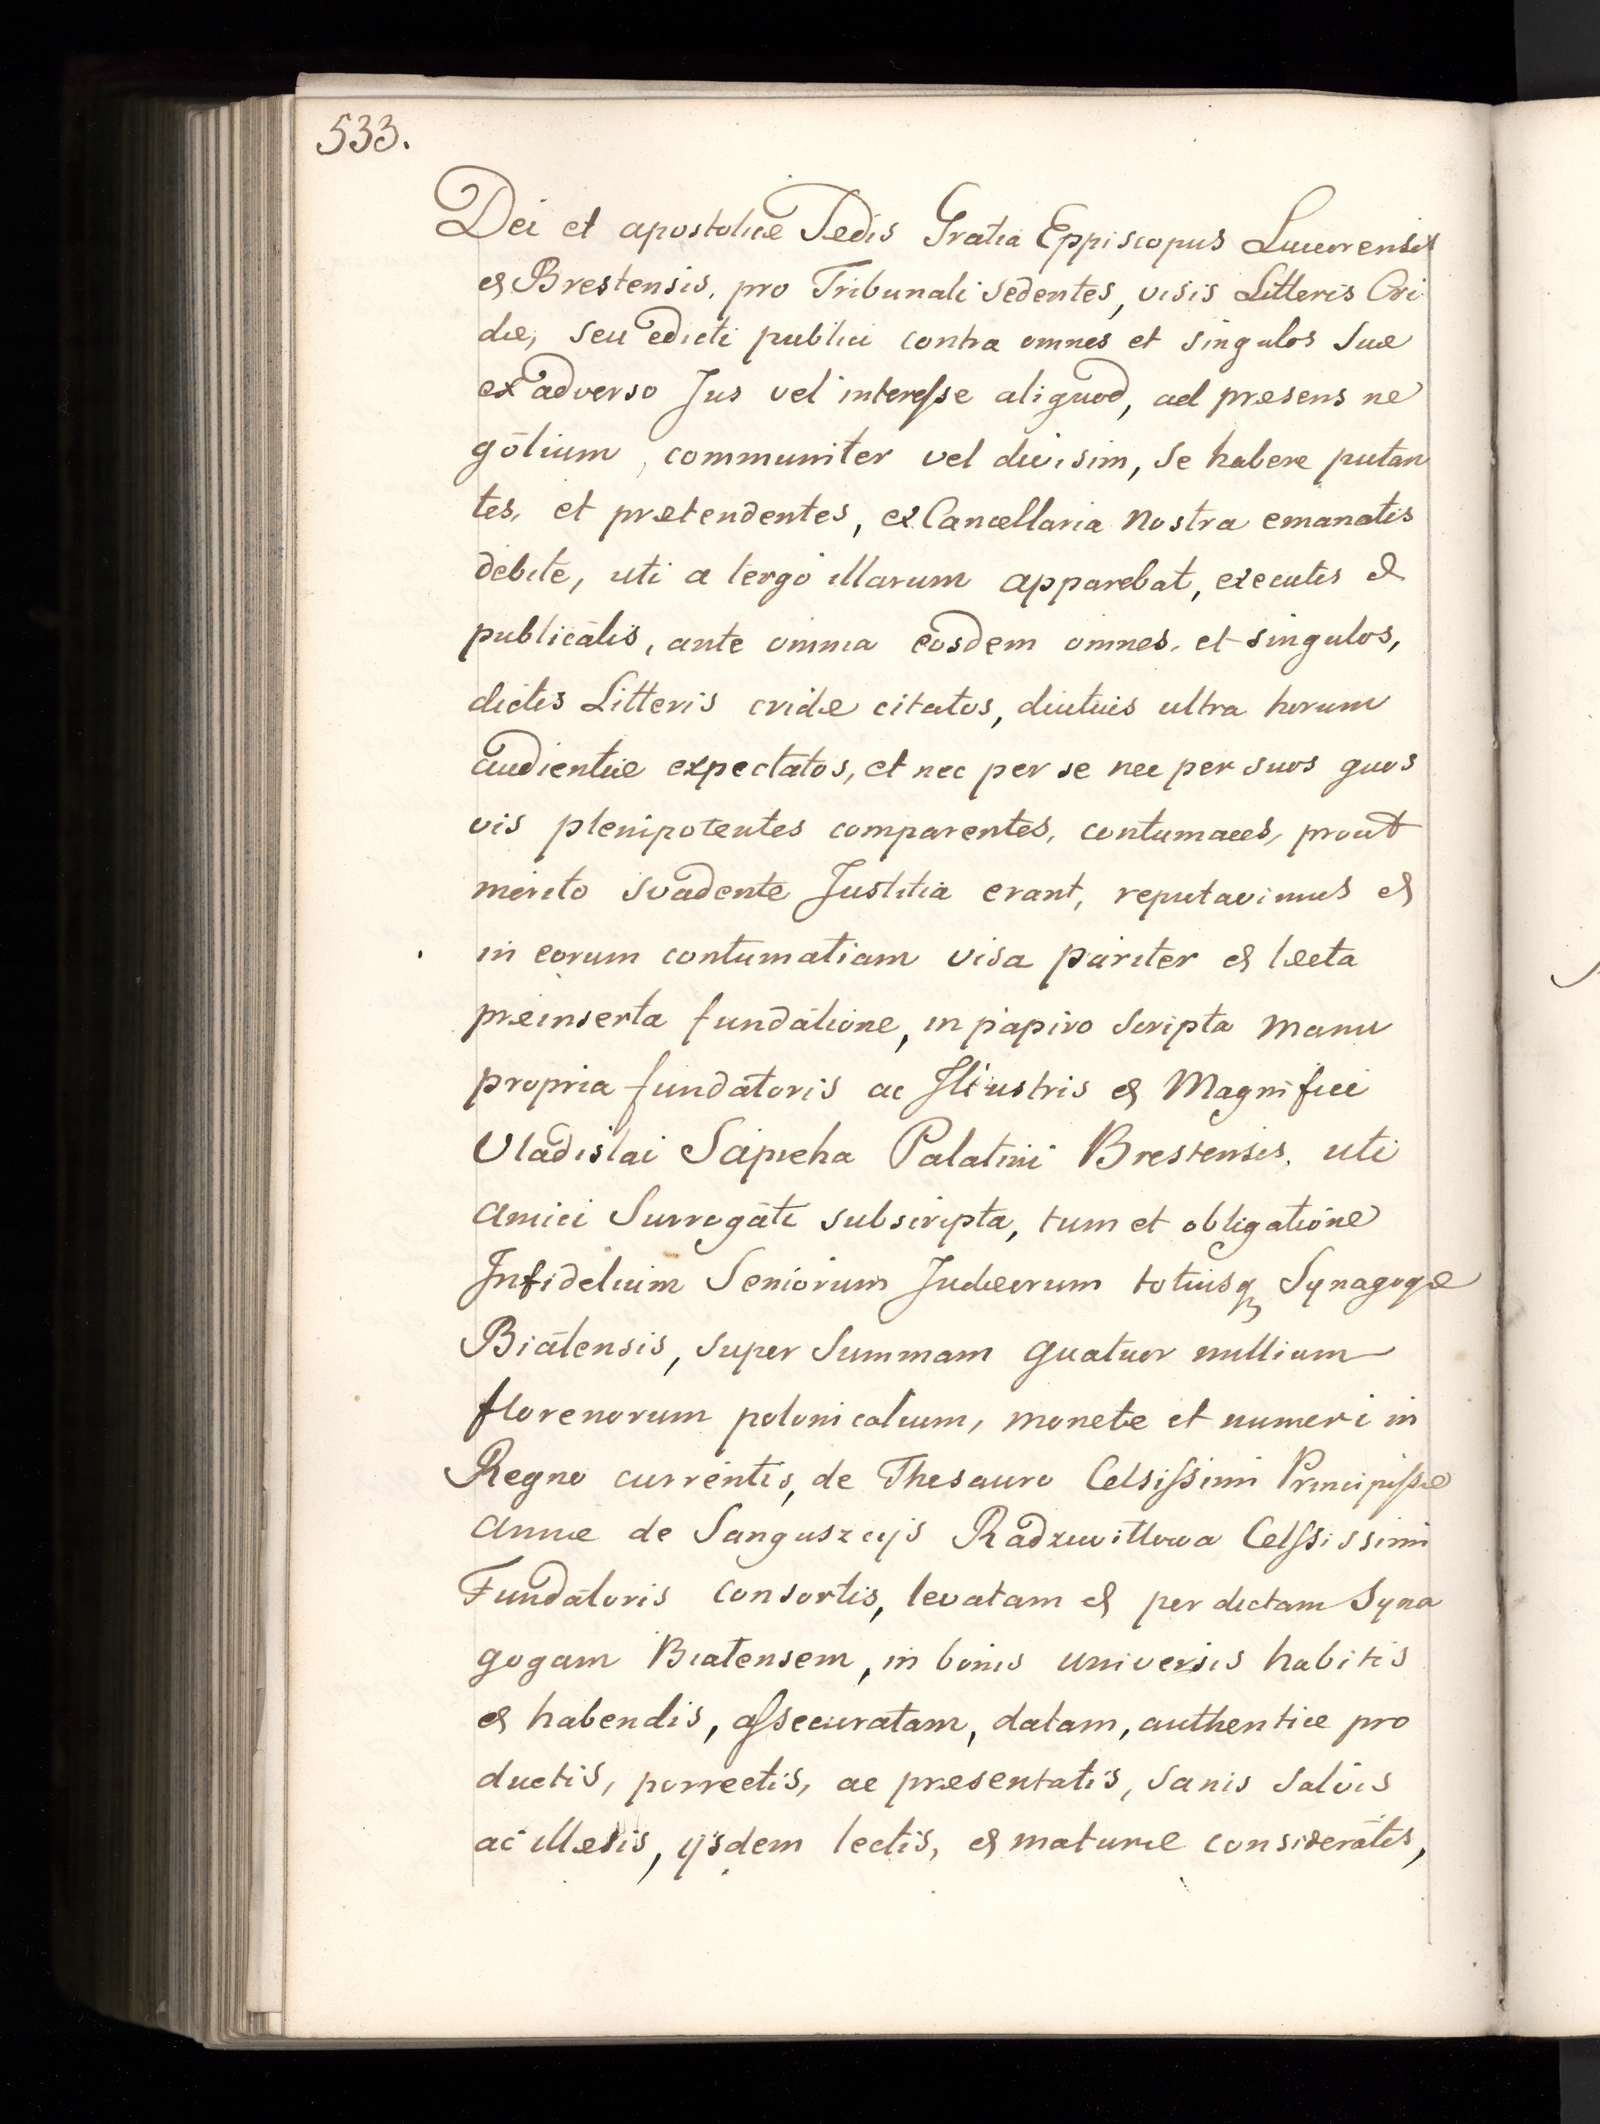 533.
Dei et apostolicæ Sedis Gratia Eppiscopus Luceorensis
et Brestensis, pro Tribunali sedentes, visis Litteris Cri
dæ, seu edicti publici contra omnes et singulos sua
ex adverso Jus vel interesse aliquod, ad præsens ne
gotium, communiter vel divisim, se habere putan
tes, et prætendentes, ex Cancellaria Nostra emanatis
debite, uti a tergo illarum apparebat, executis et
publicatis, ante omnia eosdem omnes, et singulos,
dictis Litteris cridæ citatos, diutius ultra horam
audientiæ expectatos, et nec per se nec per suos quos
vis plenipotentes comparentes, contumaces, prout
merito svadente Justitia erant, reputavimus et
in eorum contumatiam visa pariter et lecta
præinserta fundatione, in papiro scripta manu
propria fundatoris ac Illustris et Magnifici
Vladislai Sapieha Palatini Brestensis, uti
amici Surrogati subscripta, tum et obligatione
Infidelium Seniorum Judæorum totiusq Synagogæ
Bialensis, super Summam quatuor millium
florenorum polonicalium, monetæ et numeri in
Regno currentis, de Thesauro Celsissimi Principissæ
Annæ de Sanguszcijs Radziwiłłowa Celssissimi
Fundatoris consortis, levatam et per dictam Syna
gogam Bialensem, in bonis universis habitis
et habendis, assecuratam, datam, authentice pro
ductis, porrectis, ac præsentatis, sanis salvis
ac illæsis, ijsdem lectis, et mature consideratis,